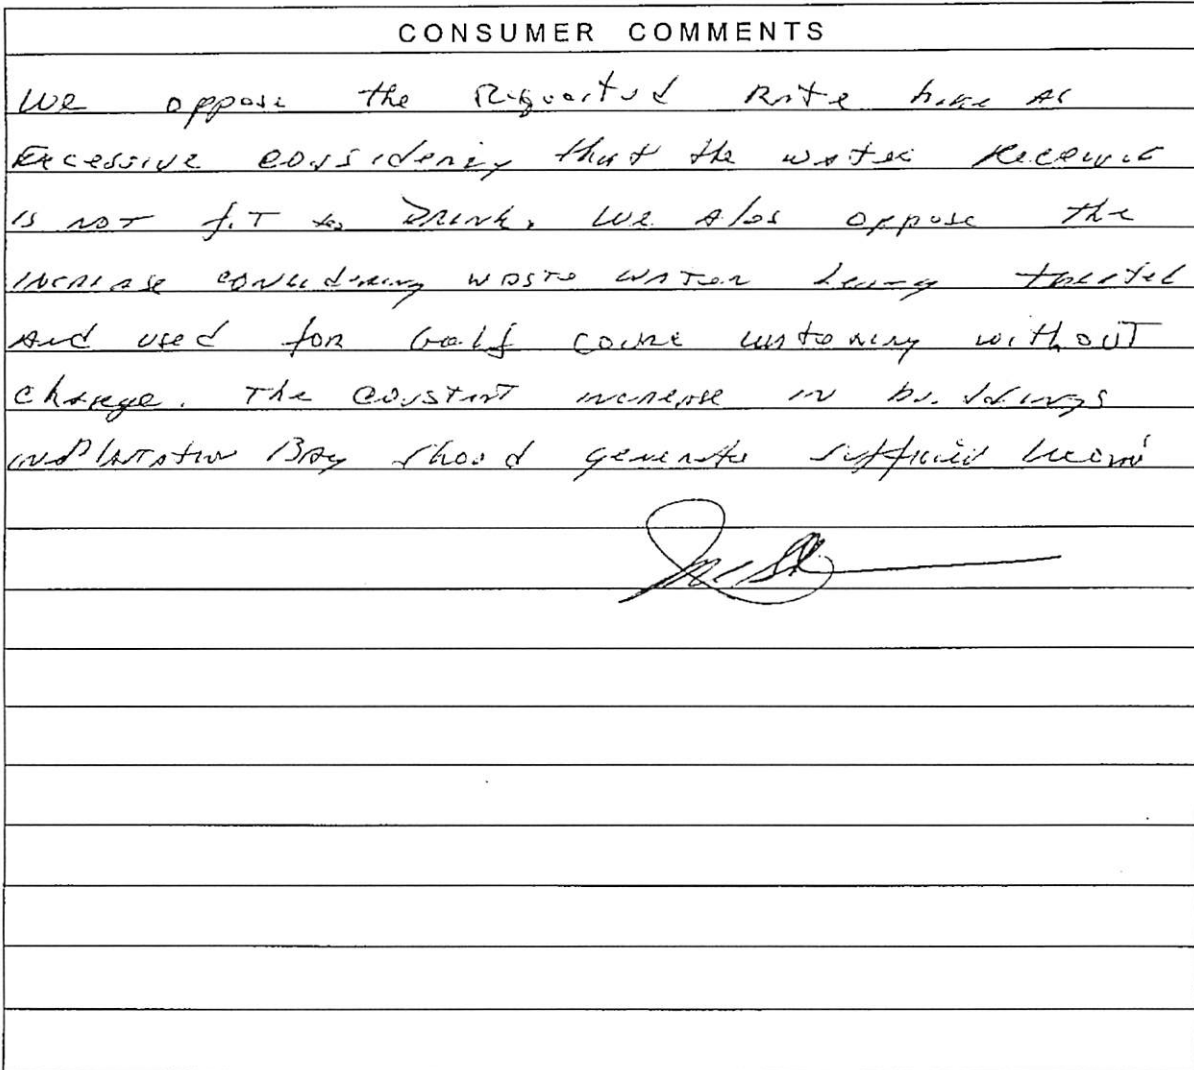 CONSUMER COMMENTS
We oppose the Requested Rate hike as
Excessive considering that the water received
is not fit to DRINK. We also oppose the
increase considering waste water being treated
and used for Golf course watering without
charge. The constant increase in buildings
in Plantation Bay should generate